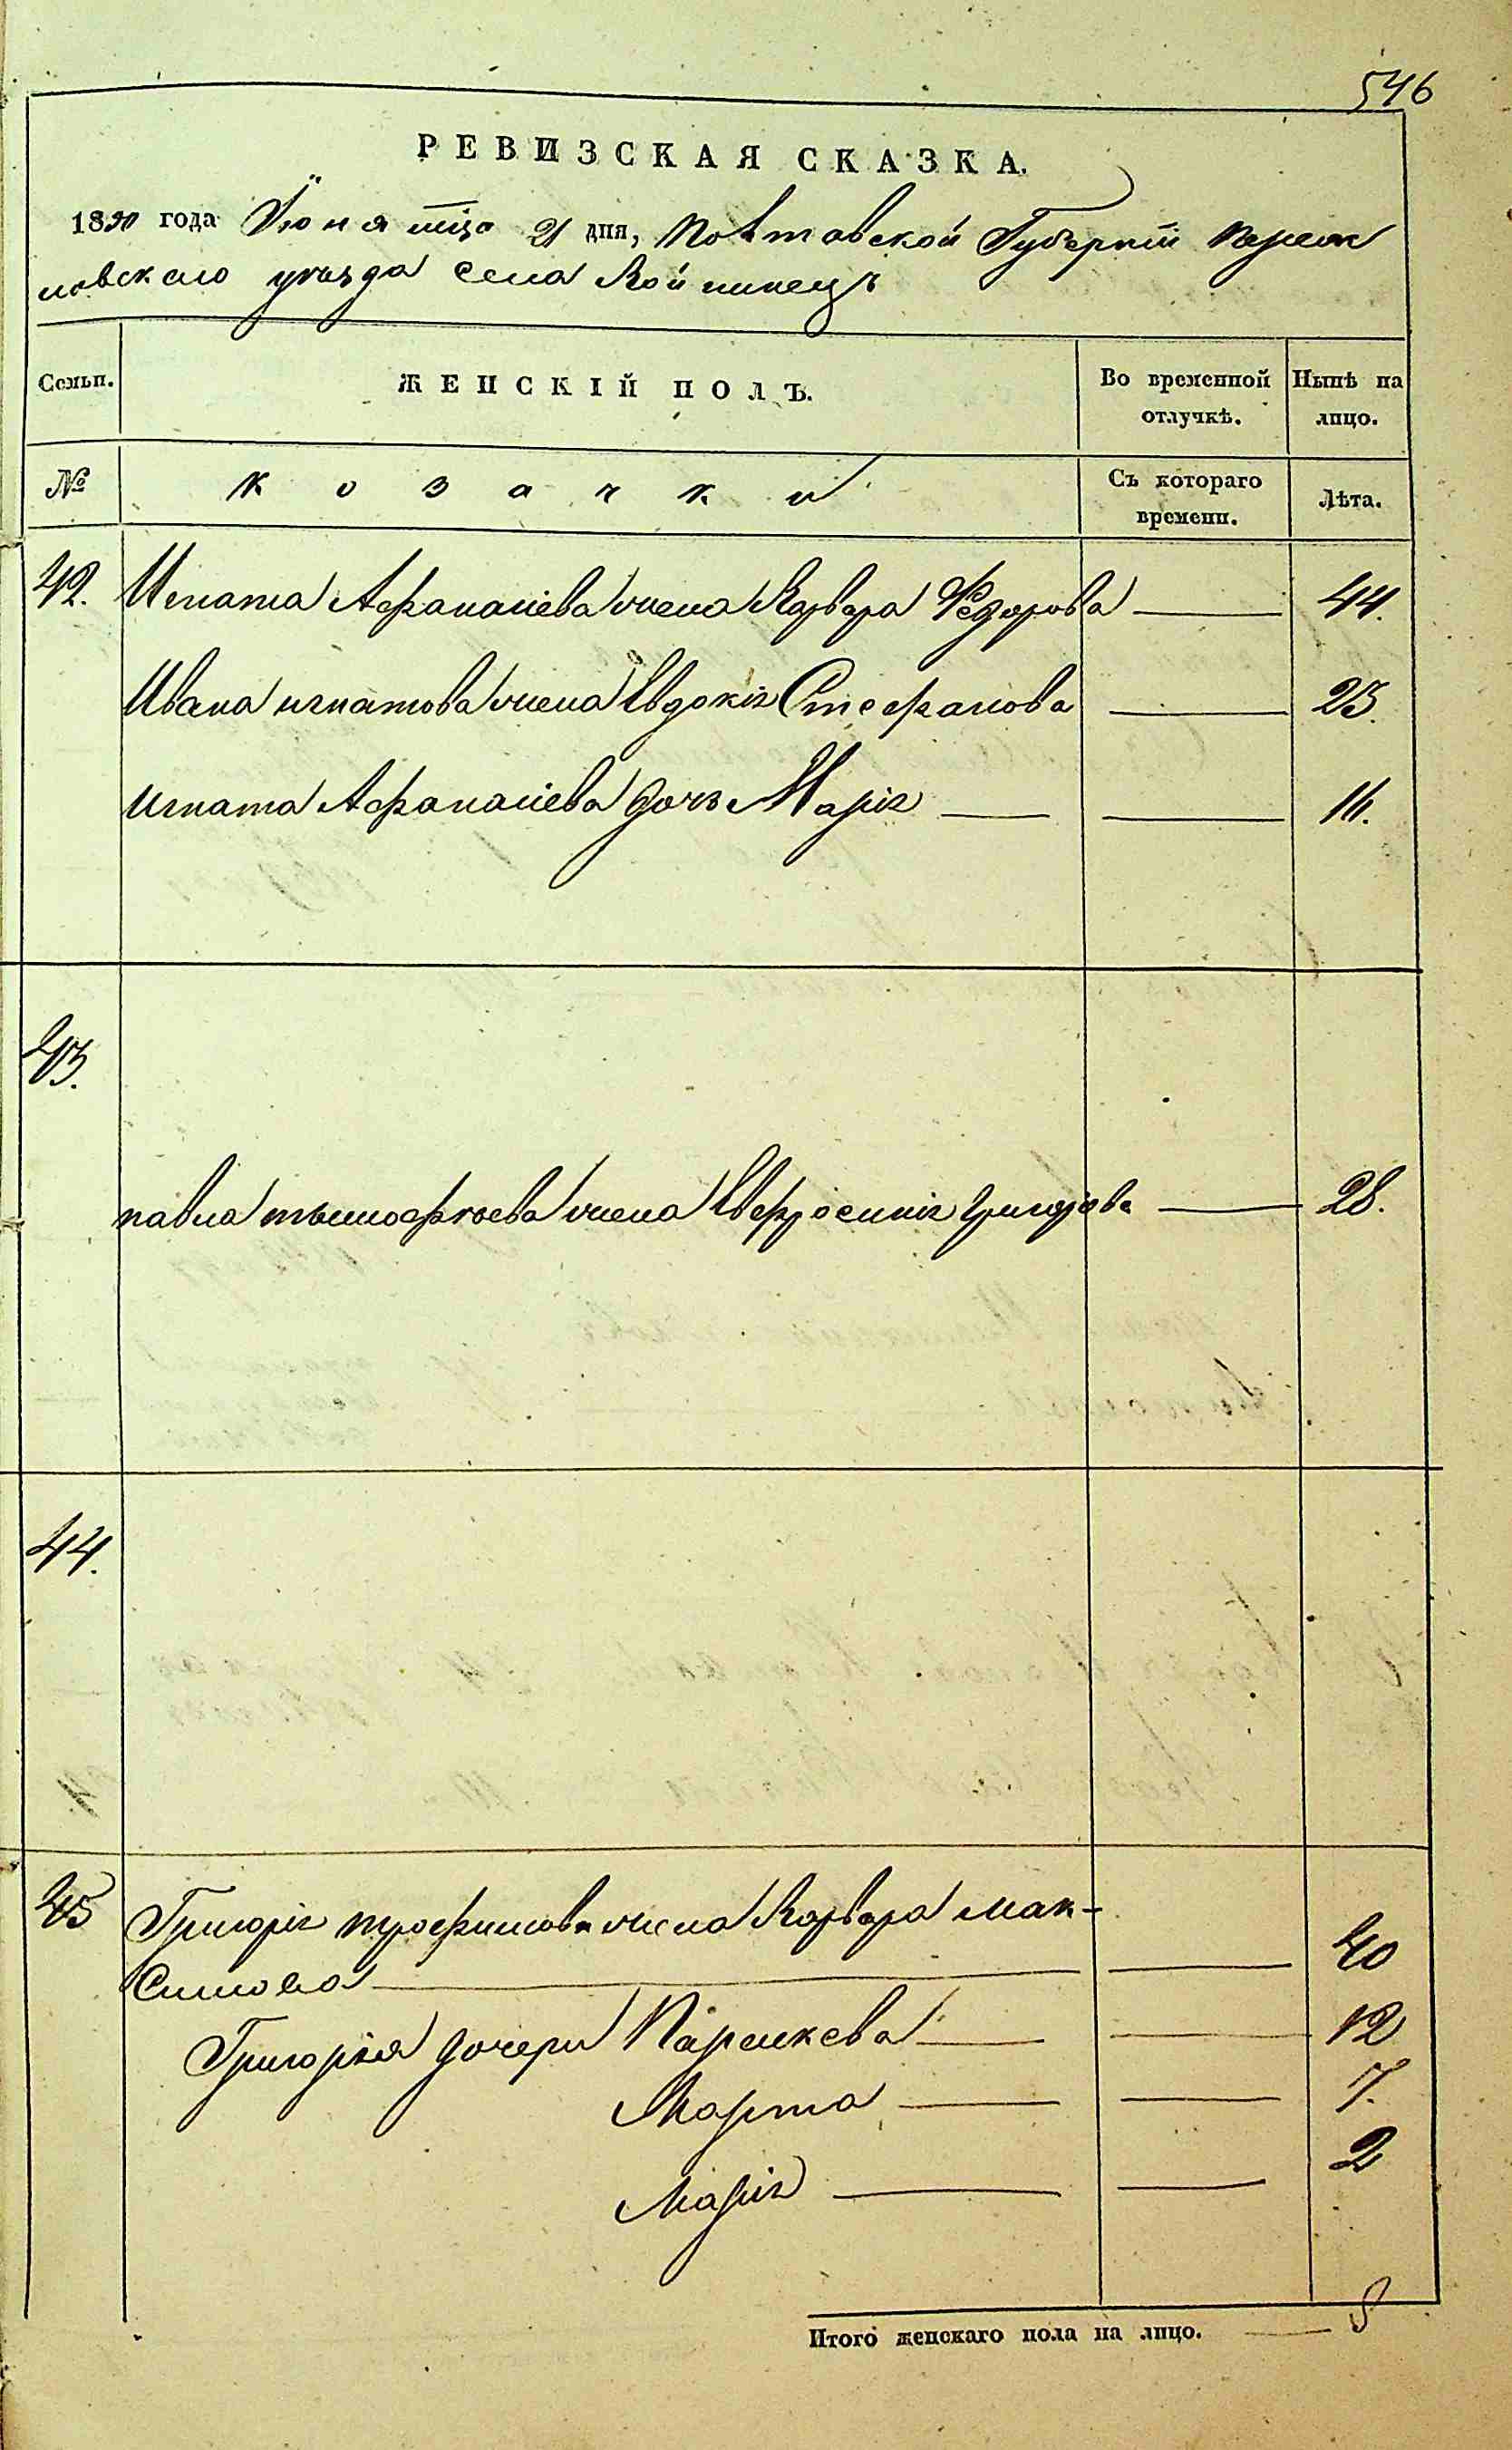 546
РЕВИЗСКАЯ СКАЗКА.
1850 года Іюня мца 21 дня, Полтавской Губерніи
уезда села Войнинецъ
Семьи. ЖЕНСКІЙ ПОЛЪ. Во временной отлучкѣ. Нынѣ на лицо.
№ Козачки Съ котораго времени. Лѣта.
42. Игната Афанасіева жена Варвара Федорова 44.
Ивана игнатова жена Евдокія Стефанова 25.
игната Афанасіева дочь Марія 16.
43.
павла тымофѣева жена Евфросинія григорова 28.
44.
45 Григорія трофимова жена Варвара мак-
симова 40
Григорія дочери Параскева 12
Марта 7.
Марія 2
Итого женскаго пола на лицо. 8